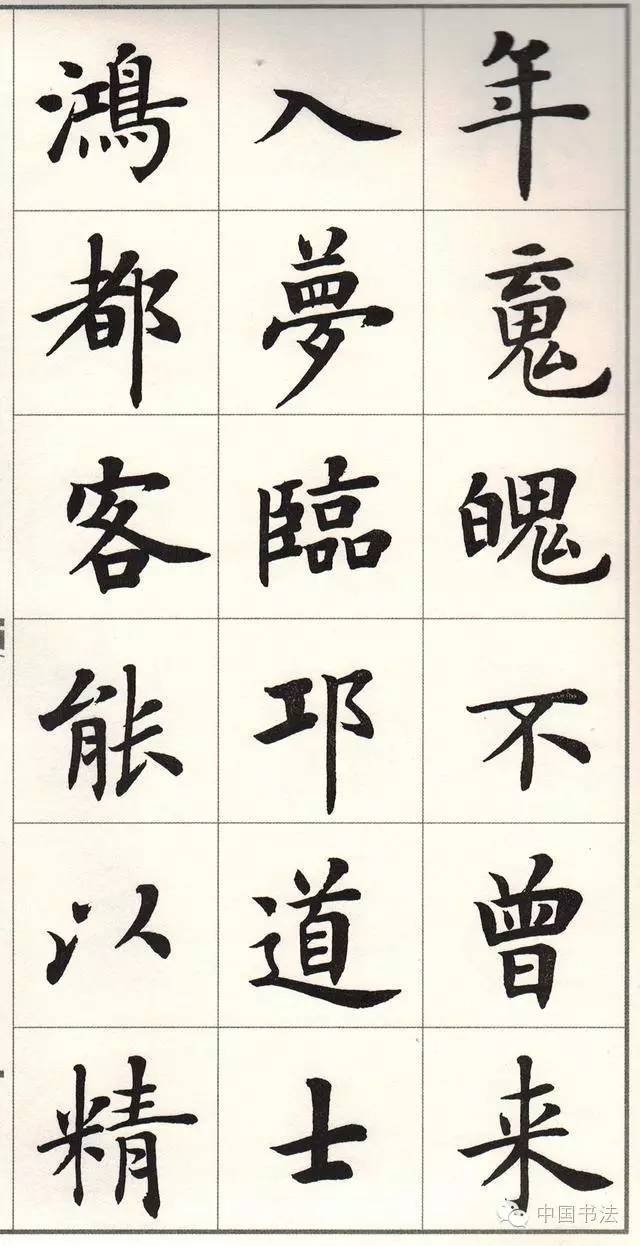 年䰟魄不曾来
入夢臨邛道士
鴻都客能以精
中国书法